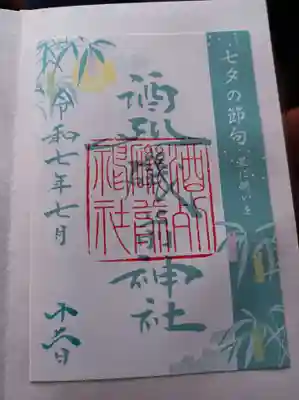 七夕の節句 星に願いを
酒列磯前神社
酒列
磯前
神社
令和七年七月十六日